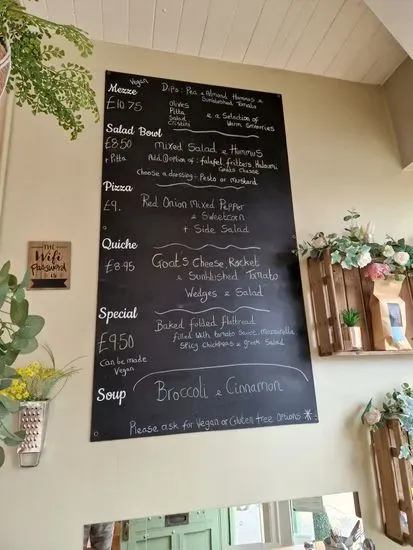 Vegan
Mezze Dips: Pea & Almond Hummus &
Sunblushed Tomato
£10.75
Olives
Pitta & a Selection of
Salad Warm Savouries
Crostini
Salad Bowl
£8.50 mixed Salad & Hummus
+ Pitta Add option of: falafel, fritters, Haloumi
Goats Cheese
Choose a dressing: Pesto or Mustard
Pizza
£9. Red Onion Mixed Pepper
& Sweetcorn
+ Side Salad
Quiche
£8.95 Goats Cheese, Rocket
& Sunblushed Tomato
Wedges & Salad
Special
£9.50 Baked folded flatbread
filled with tomato sauce, mozzarella
Spicy Chickpeas & greek Salad
Can be made
Vegan
Soup Broccoli & Cinnamon
Please ask for Vegan or Gluten free Options *
THE
Wifi
Password
IS